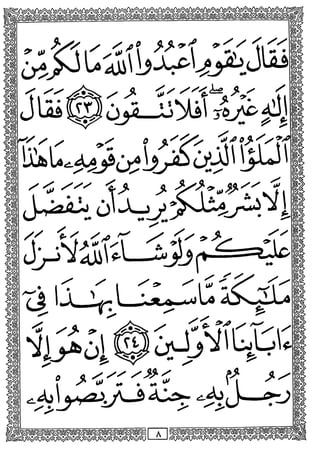 فَقَالَ يَـٰقَوْمِ ٱعْبُدُوا۟ ٱللَّهَ مَا لَكُم مِّنْ
إِلَـٰهٍ غَيْرُهُۥٓ ۖ أَفَلَا تَتَّقُونَ ٢٣ فَقَالَ
ٱلْمَلَؤُا۟ ٱلَّذِينَ كَفَرُوا۟ مِن قَوْمِهِۦ مَا هَـٰذَآ
إِلَّا بَشَرٌ مِّثْلُكُمْ يُرِيدُ أَن يَتَفَضَّلَ
عَلَيْكُمْ وَلَوْ شَآءَ ٱللَّهُ لَأَنزَلَ
مَلَـٰٓئِكَةً مَّا سَمِعْنَا بِهَـٰذَا فِىٓ
ءَابَآئِنَا ٱلْأَوَّلِينَ ٢٤ إِنْ هُوَ إِلَّا
رَجُلٌۢ بِهِۦ جِنَّةٌ فَتَرَبَّصُوا۟ بِهِۦ
٨